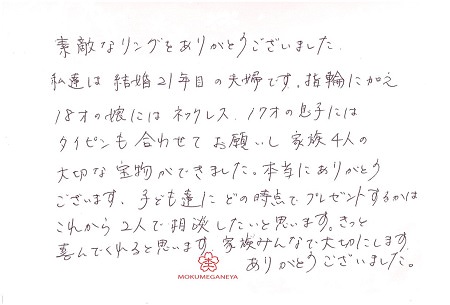 素敵なリングをありがとうございました.
私達は 結婚21年目の夫婦です. 指輪に加え
18才の娘には ネックレス. 17才の息子には
タイピンも 合わせて お願いし 家族4人の
大切な 宝物ができました。本当に ありがとう
ございます. 子ども達に どの時点で プレゼントするかは
これから 2人で 相談したいと思います。きっと
喜んでくれると思います. 家族みんなで大切にします.
ありがとうございました。
MOKUMEGANEYA